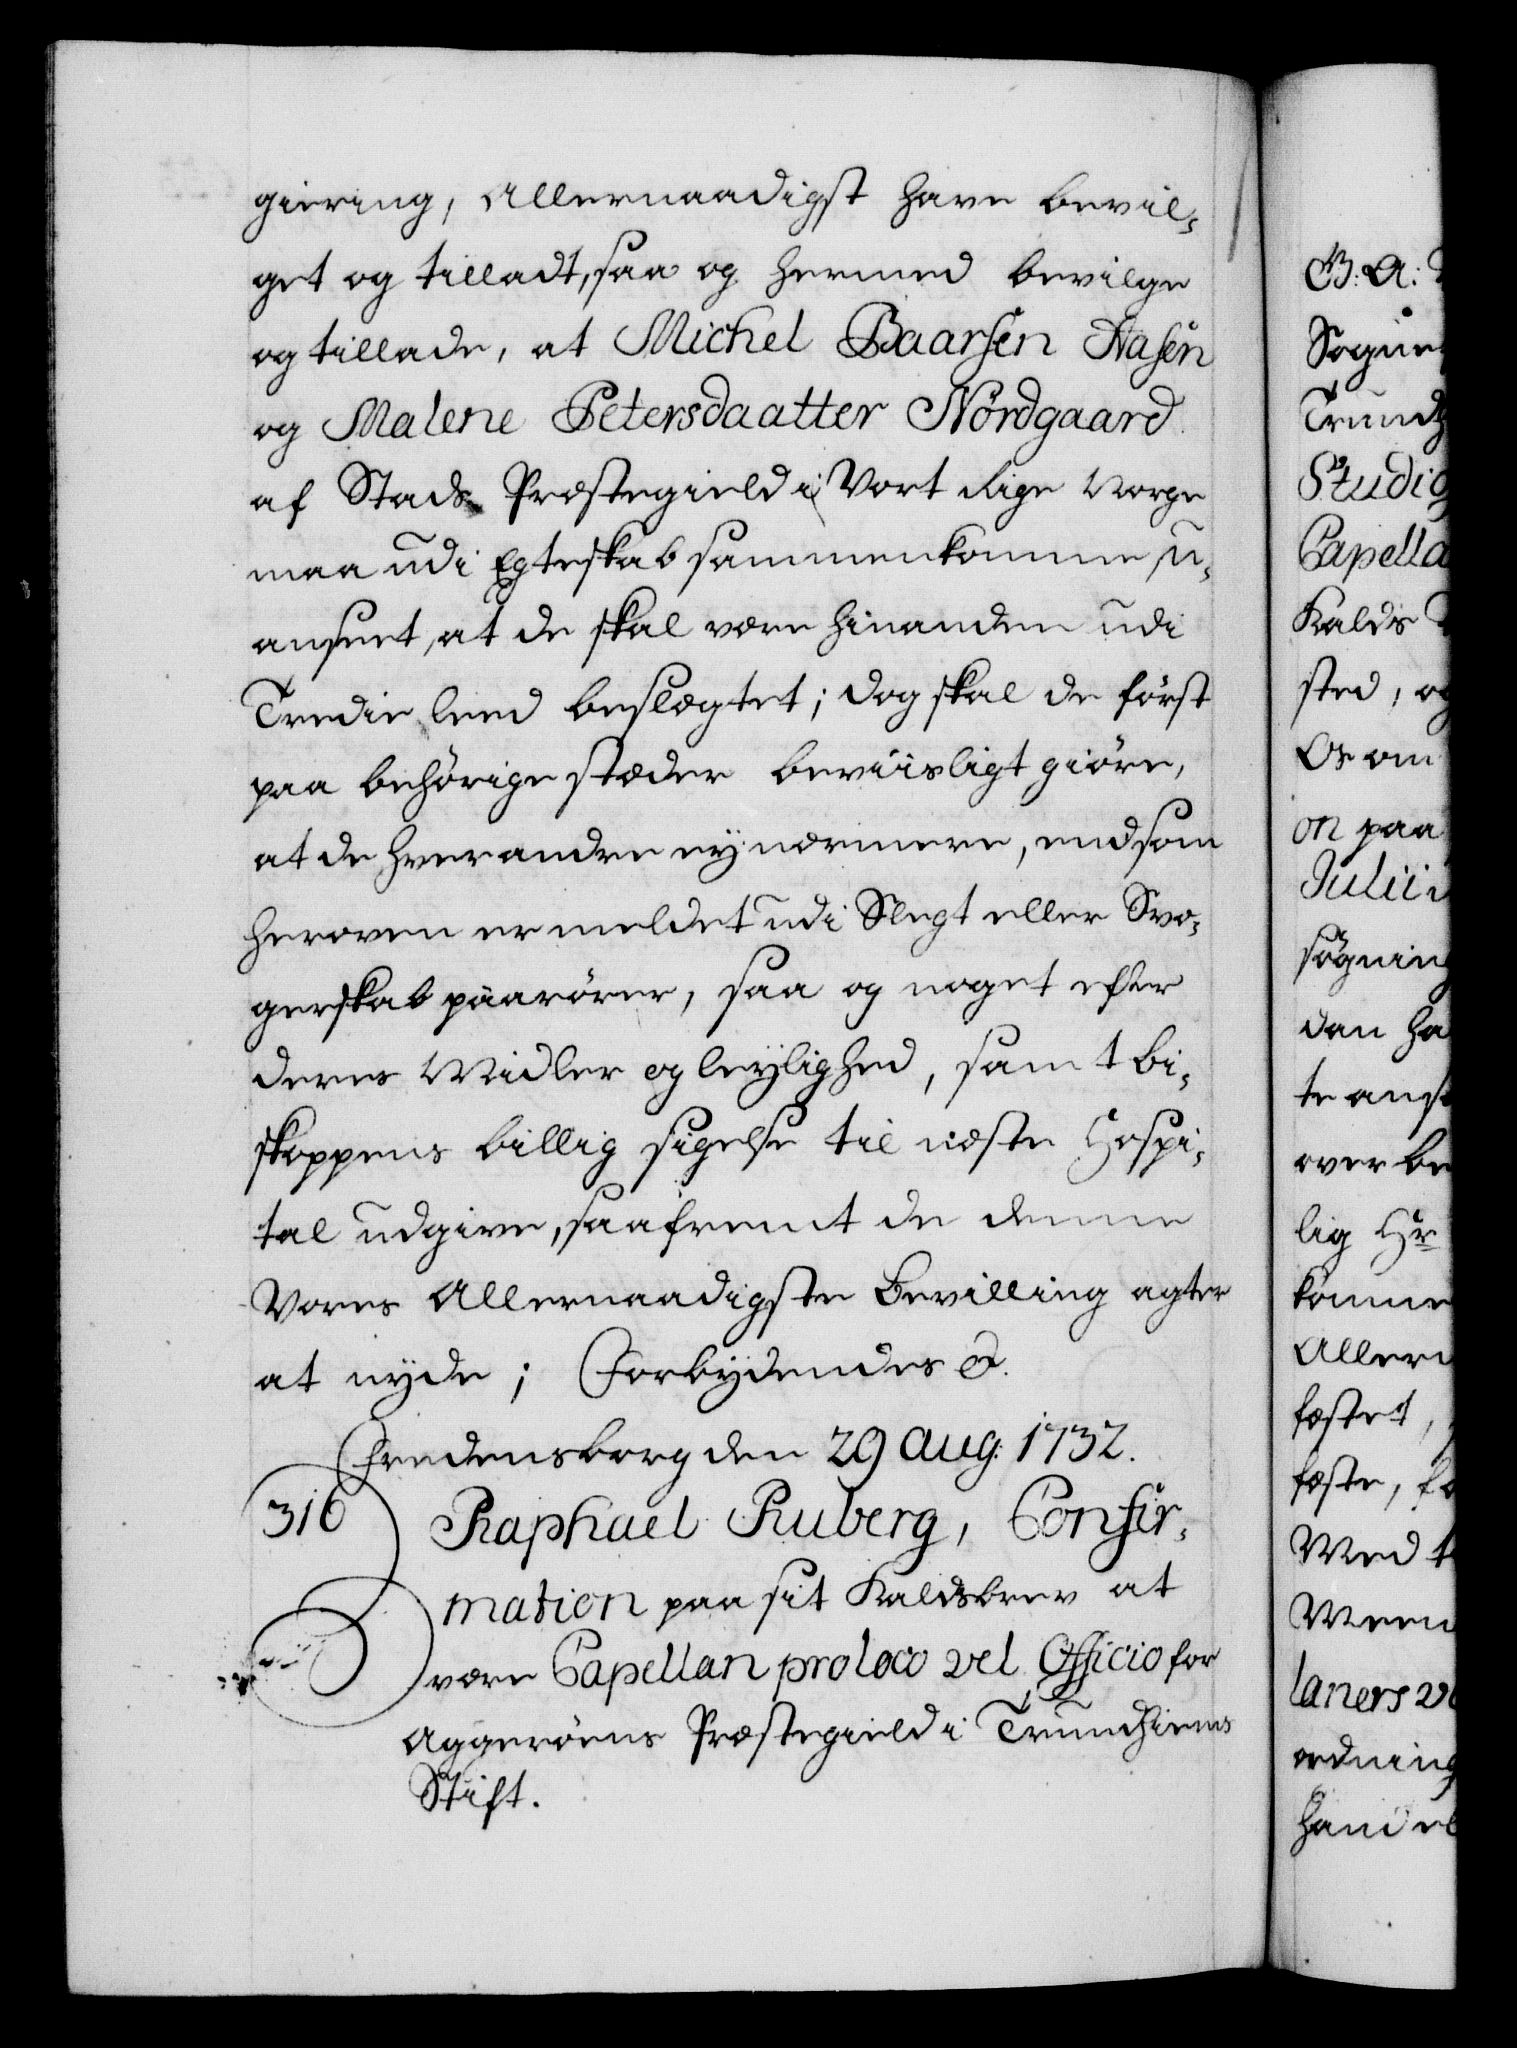 giering, Allernaadigst have bevil-
get og tilladt, saa og hermed bevilge
og tillade, at Michel Baarsen Aasen
og Malene Petersdaatter Nordgaard
af Stads Præstegield i Vort Rige Norge
maa udi Egteskab sammenkomme u-
anseet, at de skal være hinanden udi
Tredie leed beslægtet; dog skal de först
paa behörige stæder beviisligt giöre,
at de hverandre ey nærmere, end som
heroven er meldet udi Slegt eller Svo-
gerskab paarörer, saa og noget efter
deres Midler og leylighed, samt Bi-
skoppens billig sigelse til næste Hospi-
tal udgive, saafremt de denne
Vores Allernaadigste Bevilling agter
at nyde; Forbydendes &.
Fredensborg den 29 Aug: 1732.
316 Raphael Ruberg, Confir-
mation paa sit Kaldsbrev at
være Capellan pro loco vel Officio for
Aggeröens Præstegield i Trundhiems
Stift.
G: A:
Sogne
Trundh
Studio
Capella
Kalds
sted, og
Os om
on paa
Julii
søgning
dan ha
te ans
over be
lig Hr
komme
Allern
fæstet,
fæste,
Med
Meen
laners ve
ordning